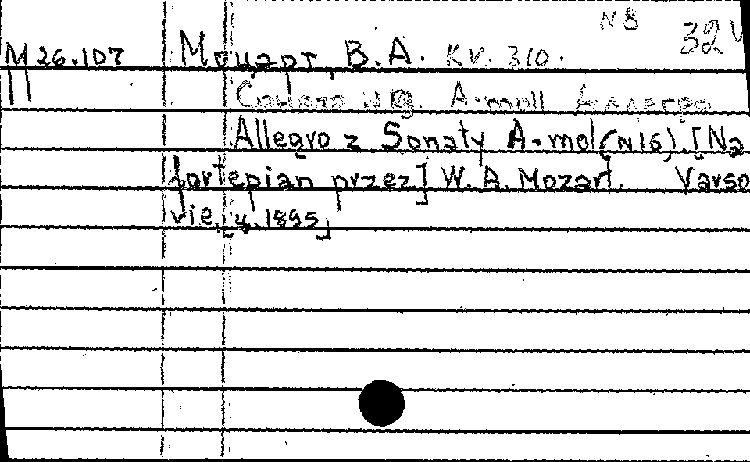 N8 32
M 26.107 Моцарт, В.А. KV. 310.
Соната №8. A-moll Аллегро
Allegro z Sonaty A-mol (N16). [Na
fortepian przez] W. A. Mozart. Varso
vie, [ц. 1895]